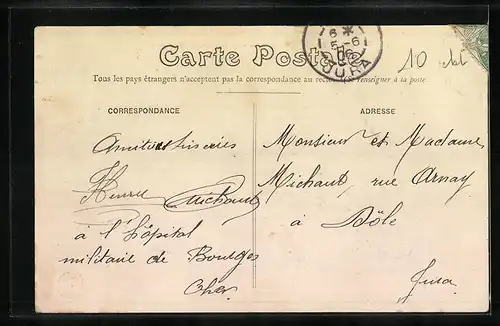 Carte Postale
Tous les pays étrangers n'acceptent pas la correspondance au recto se renseigner à la poste
CORRESPONDANCE
ADRESSE
6 *
5-6
06
JURA
10
Amitiés sincères
Henri Michaut
à l'hôpital
militaire de Bourges
Cher
Monsieur et Madame
Michaut, rue Arnay
à Dôle
Jura